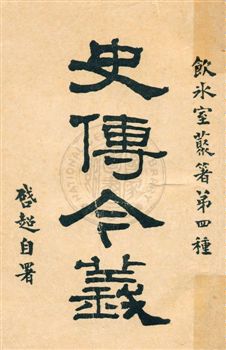 飲冰室叢箸第四種
史傳今義
啓超自署